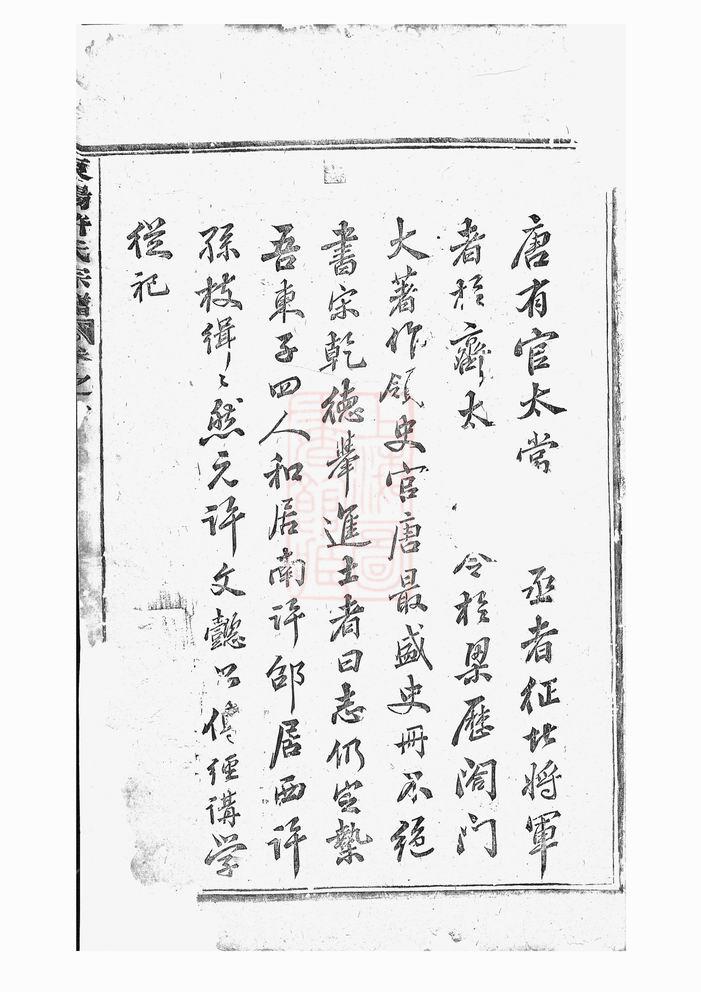 唐有官太常 丞者征北將軍
者於齊太 令於梁歷閤門
大著作領史官唐最盛史冊不絕
書宋乾德舉進士者曰志仍定
吾東子四人和居南許邵居西許
孫枝緝〻然元許文懿公傳經講學
從祀
東陽許氏宗譜 卷之